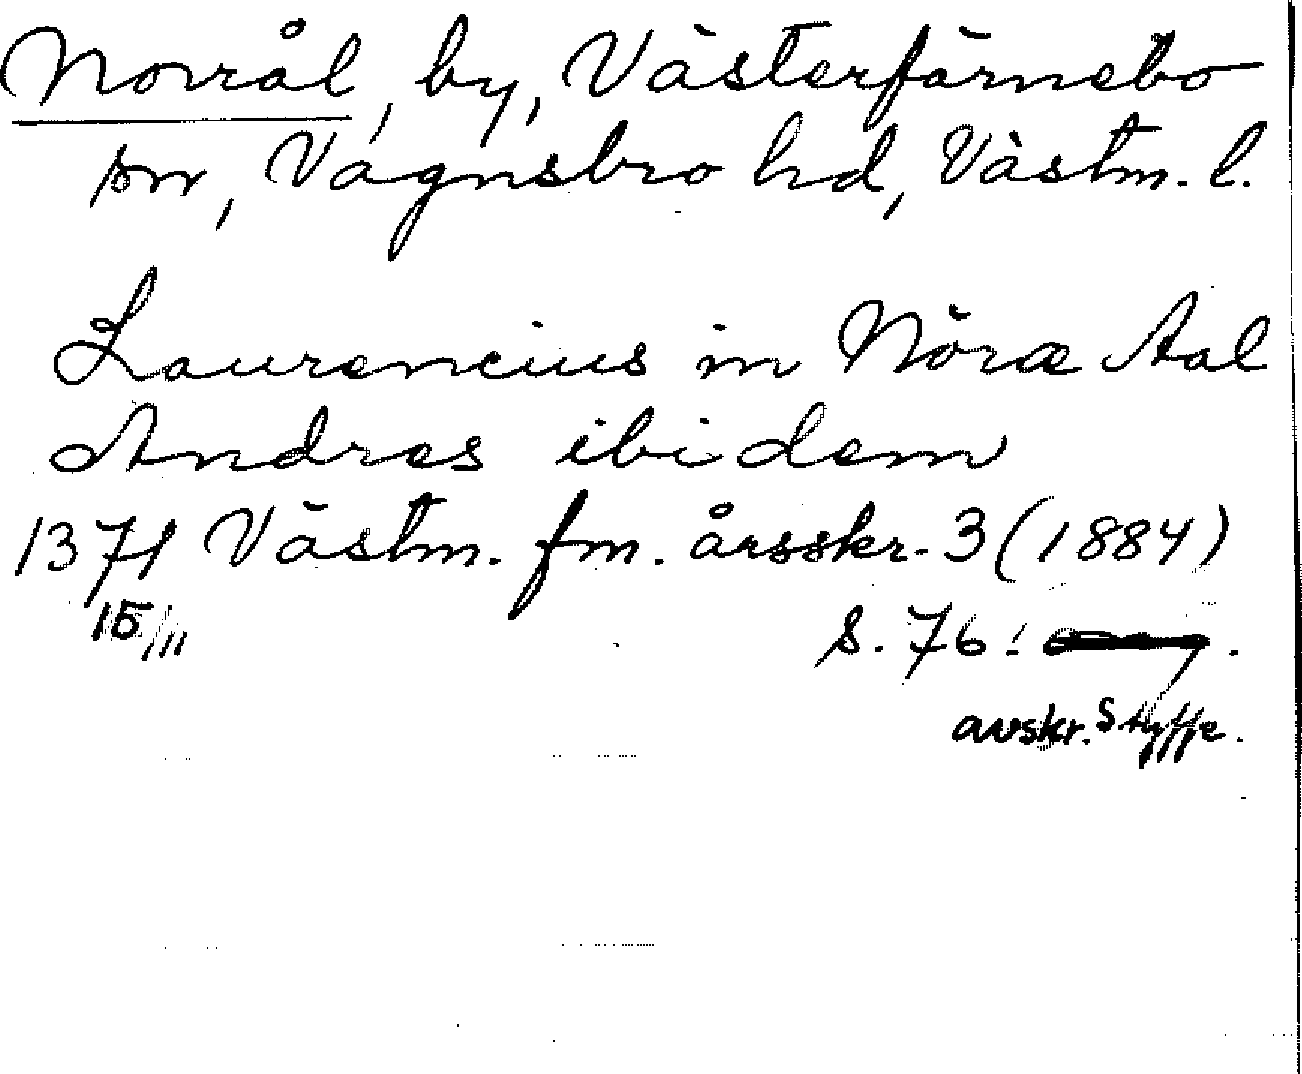 Norrål, by, Västerfärnebo
sn, Vagnsbro hd, Västm. l.
Laurencius in Nöræ Aal
Andres ibidem
1371 Västm. fm. årsskr. 3 (1884)
15/11 s. 76:
avskr. Styffe.